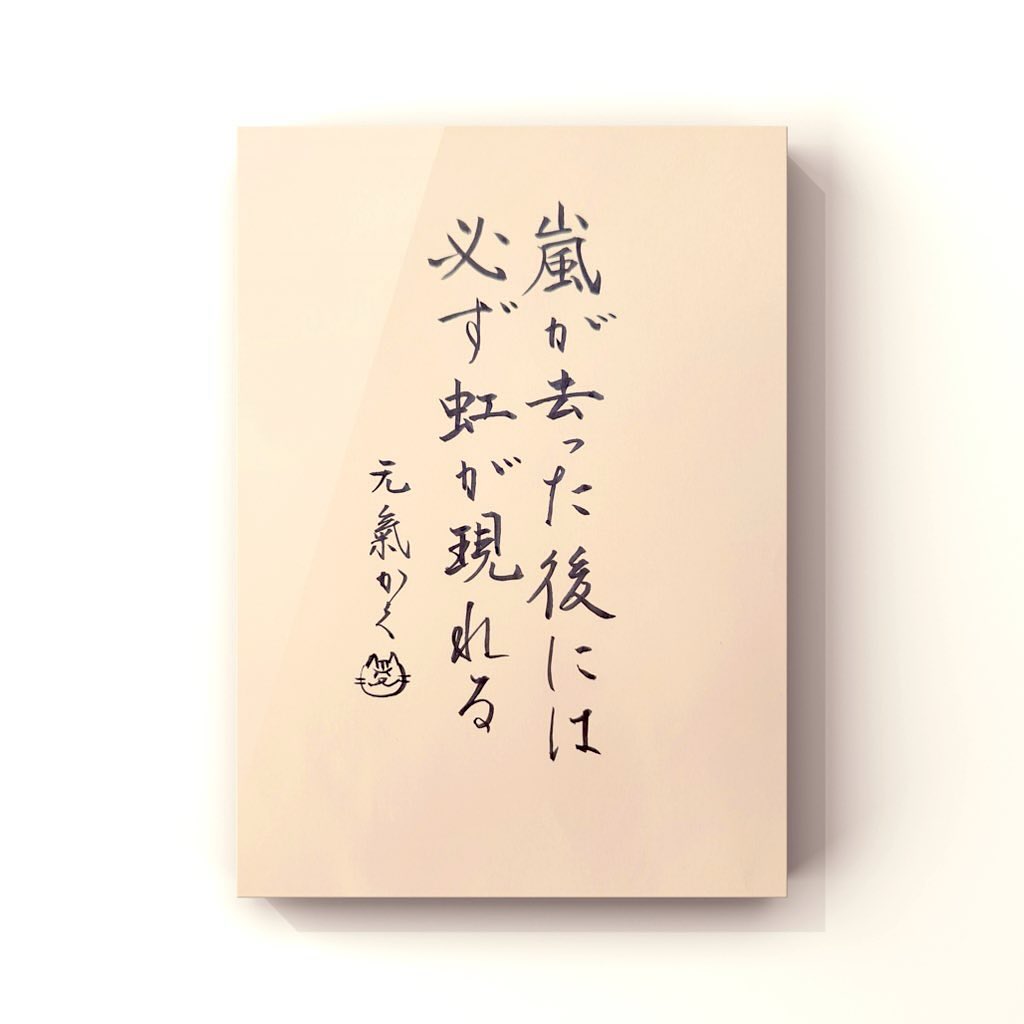 嵐が去った後には
必ず虹が現れる
元氣かく